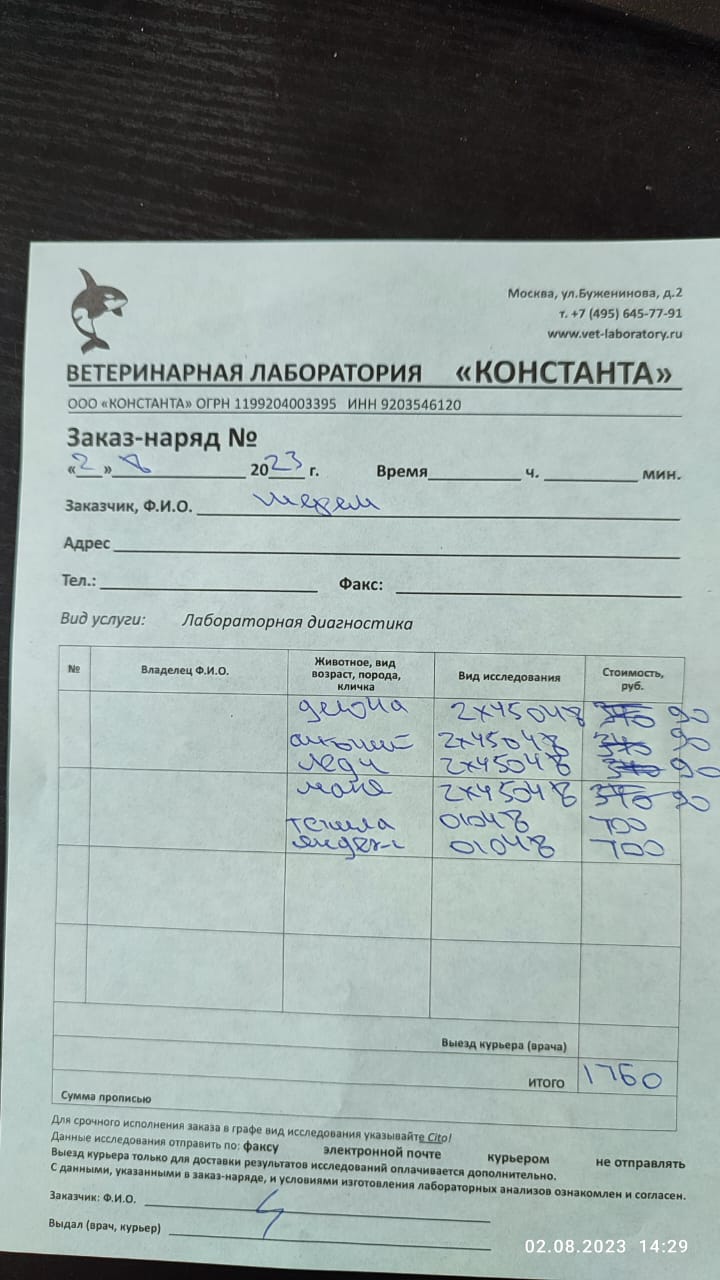 Москва, ул.Буженинова, д.2
т. +7 (495) 645-77-91
www.vet-laboratory.ru
ВЕТЕРИНАРНАЯ ЛАБОРАТОРИЯ «КОНСТАНТА»
ООО «КОНСТАНТА» ОГРН 1199204003395 ИНН 9203546120
Заказ-наряд №
«2» 8 2023 г. Время ч. мин.
Заказчик, Ф.И.О.
Адрес
Тел.: Факс:
Вид услуги: Лабораторная диагностика
№ Владелец Ф.И.О. Животное, вид возраст, порода, кличка Вид исследования Стоимость, руб.
2х45048 370 90
2х45048 370 90
леди 2х45048 370 90
майя 2х45048 370 90
01048 700
01048 700
Выезд курьера (врача)
ИТОГО 1760
Сумма прописью
Для срочного исполнения заказа в графе вид исследования указывайте Cito!
Данные исследования отправить по: факсу электронной почте курьером не отправлять
Выезд курьера только для доставки результатов исследований оплачивается дополнительно.
С данными, указанными в заказ-наряде, и условиями изготовления лабораторных анализов ознакомлен и согласен.
Заказчик: Ф.И.О.
Выдал (врач, курьер)
02.08.2023 14:29